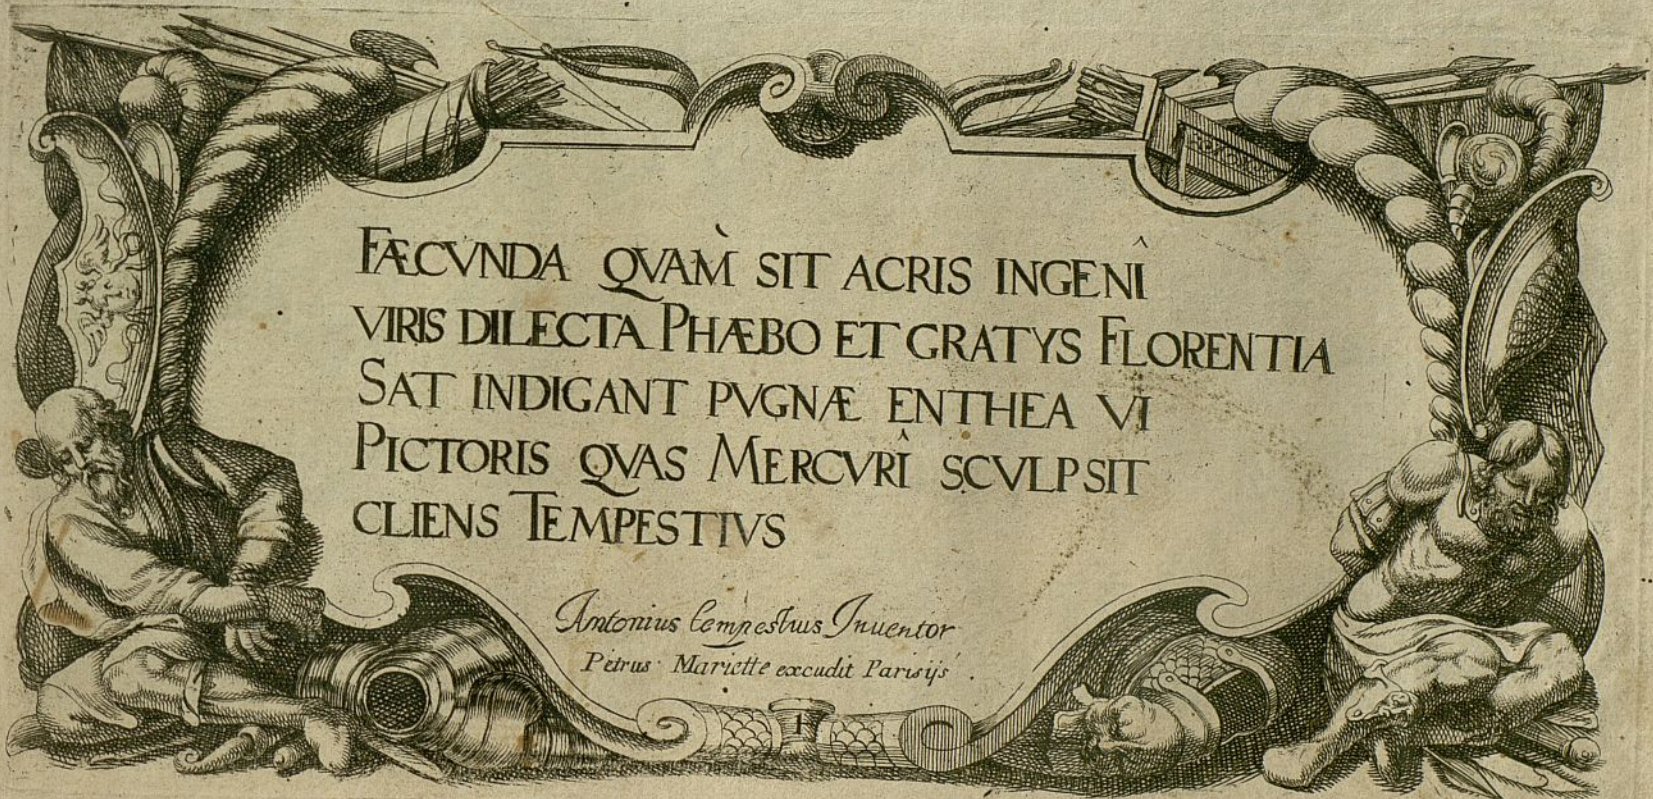 FÆCVNDA QVAM̀ SIT ACRIS INGENÎ
VIRIS DILECTA PHÆBO ET GRATYS FLORENTIA
SAT INDIGANT PVGNÆ ENTHEA VI
PICTORIS QVAS MERCVRÎ SCVLPSIT
CLIENS TEMPESTIVS
Antonius tempestius Inuentor
Petrus Mariette excudit Parisijs
1